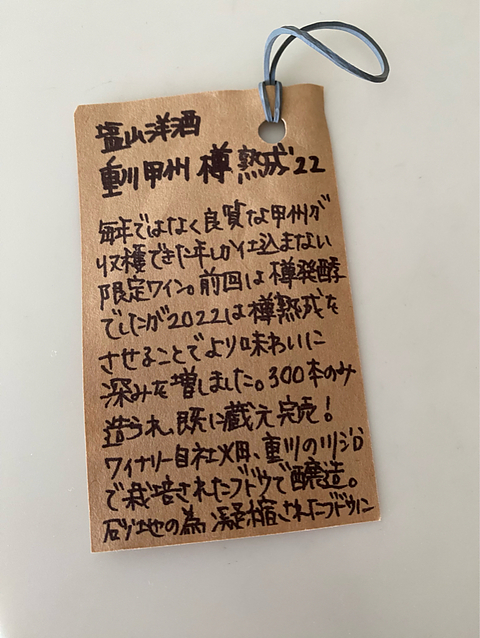 塩山洋酒
重川甲州 樽熟成'22
毎年ではなく良質な甲州が
収穫できた年しか仕込まない
限定ワイン。前回は樽発酵
でしたが2022は樽熟成を
させることでより味わいに
深みを増しました。300本のみ
造られ、既に蔵元完売!
ワイナリー自社畑、重川の川沿
で栽培されたブドウで醸造。
砂地の為凝縮されたブドウに